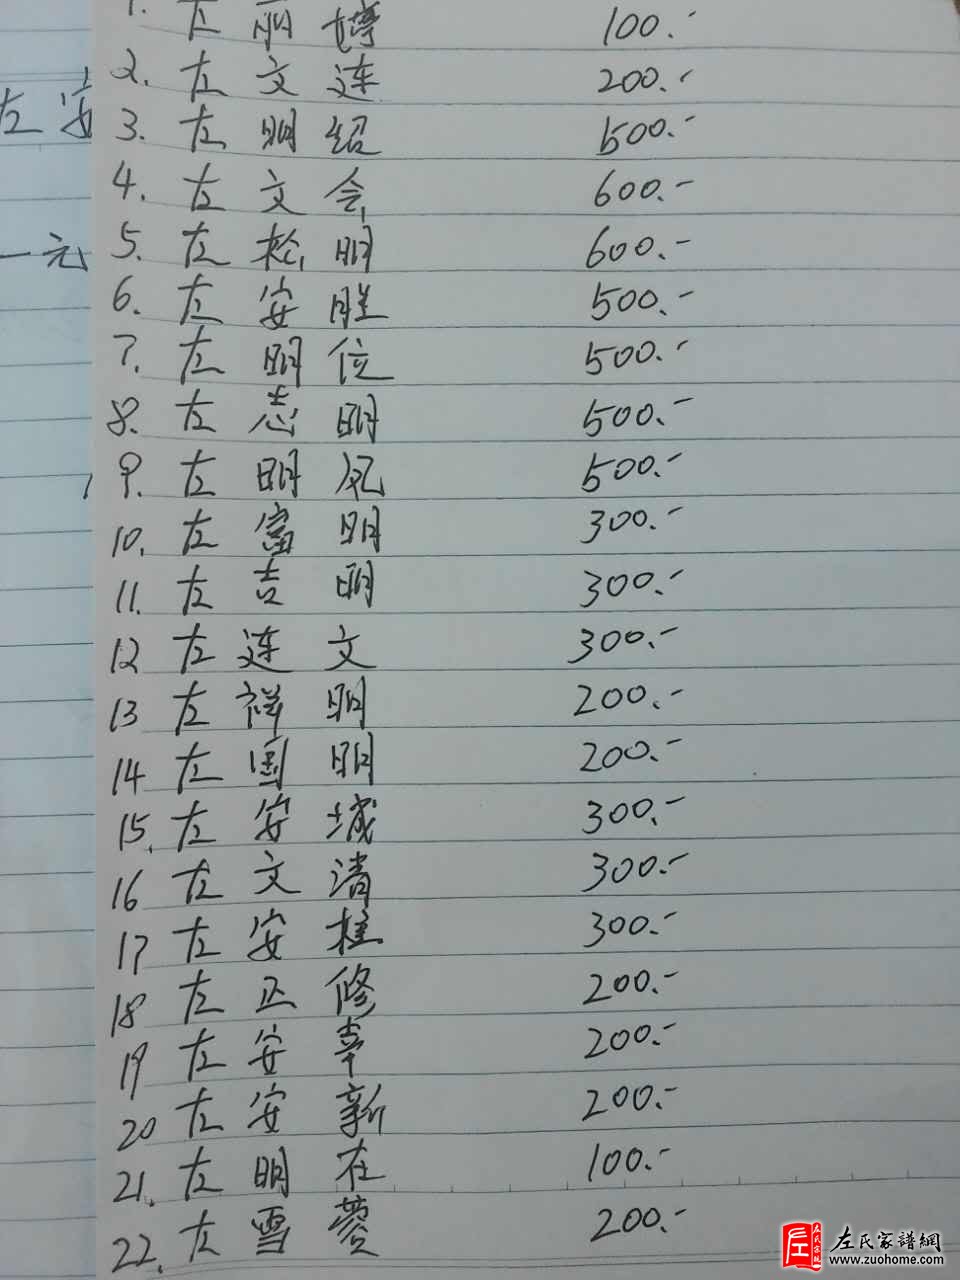 1. 左丽婷 100.-
2. 左文连 200.-
左安
3. 左明绍 500.-
4. 左文会 600.-
一元
5. 左松明 600.-
6. 左安胜 500.-
7. 左明位 500.-
8. 左志明 500.-
9. 左明 500.-
10. 左富明 300.-
11. 左吉明 300.-
12 左连文 300.-
13 左祥明 200.-
14 左国明 200.-
15. 左安城 300.-
16 左文清 300.-
17 左安柱 300.-
18 左正修 200.-
19 左安幸 200.-
20 左安新 200.-
21. 左明在 100.-
22. 左雪 200.-
左氏家譜網
www.zuohome.com